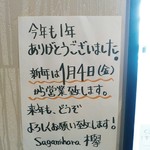 今年も1年
ありがとうございました!
新年は1月4日(金)
から営業致します。
来年も、どうぞ
よろしくお願い致します!
Sagamihara 欅